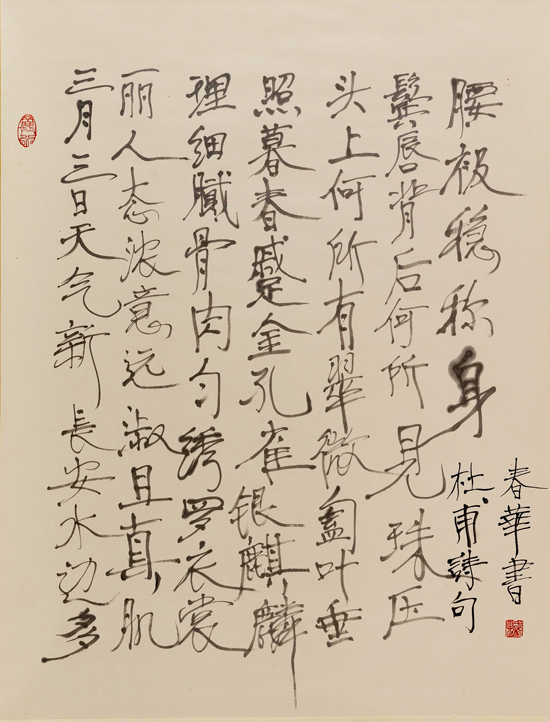 三月三日天气新長安水边多
丽人态浓意远淑且真肌
理细腻骨肉匀绣罗衣裳
照暮春蹙金孔雀银麒麟
头上何所有翠微㔩叶垂
鬓唇背后何所见珠压
腰衱稳称身
杜甫詩句
春華書